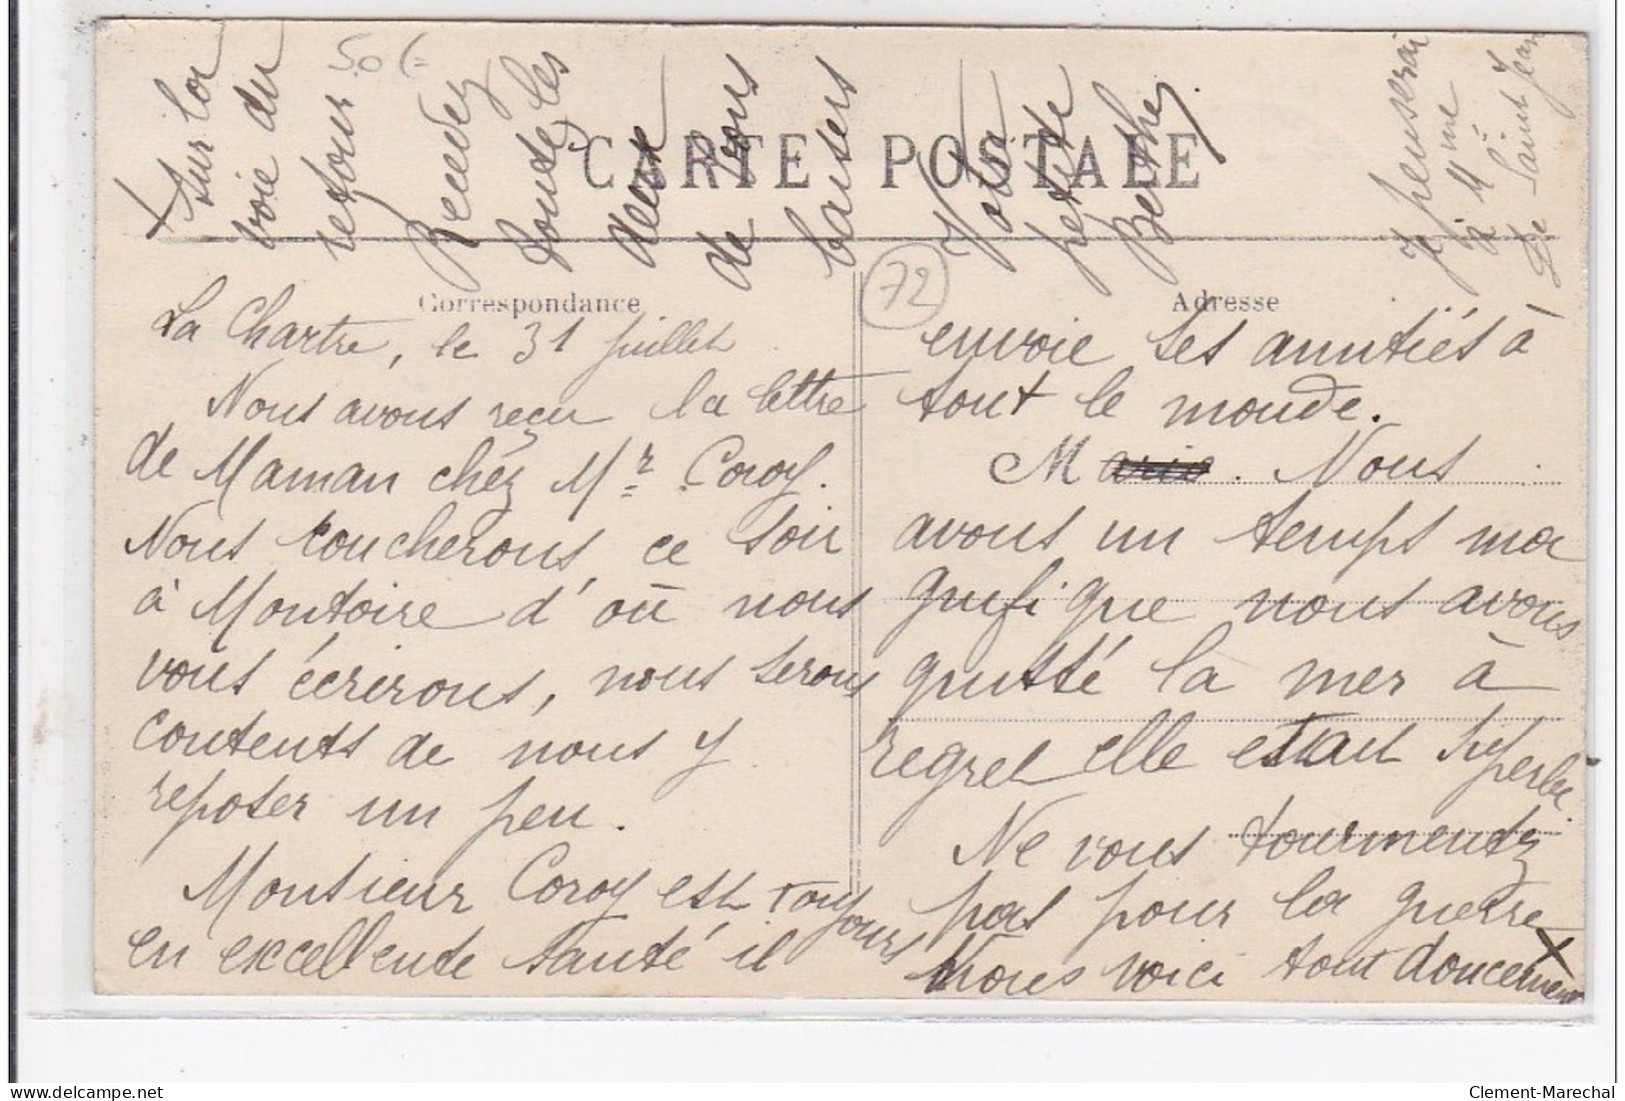 CARTE POSTALE
Correspondance
Adresse
La Chartre, le 31 juillet
Nous avons reçu la lettre
de Maman chéz Mr Coroy.
Nous coucherons ce soir
à Montoire d'où nous
vous écrirons, nous serons
contents de nous y
reposer un peu.
Monsieur Coroy est toujours
en excellente santé il
72
envoie ses amitiés à
tout le monde.
M. Nous
avons un temps ma
gnifique nous avons
quitté la mer à
regret elle était superbe
Ne vous tourmentez
pas pour la guerre
Nous voici tout doucement
X
X sur la
voie du
retour
Recevez
toutes les
deux
de bons
baisers
Votre
petite
Berthe.
Je penserai
à Mme
De Saint Jean
50 f=
Clement-Marechal